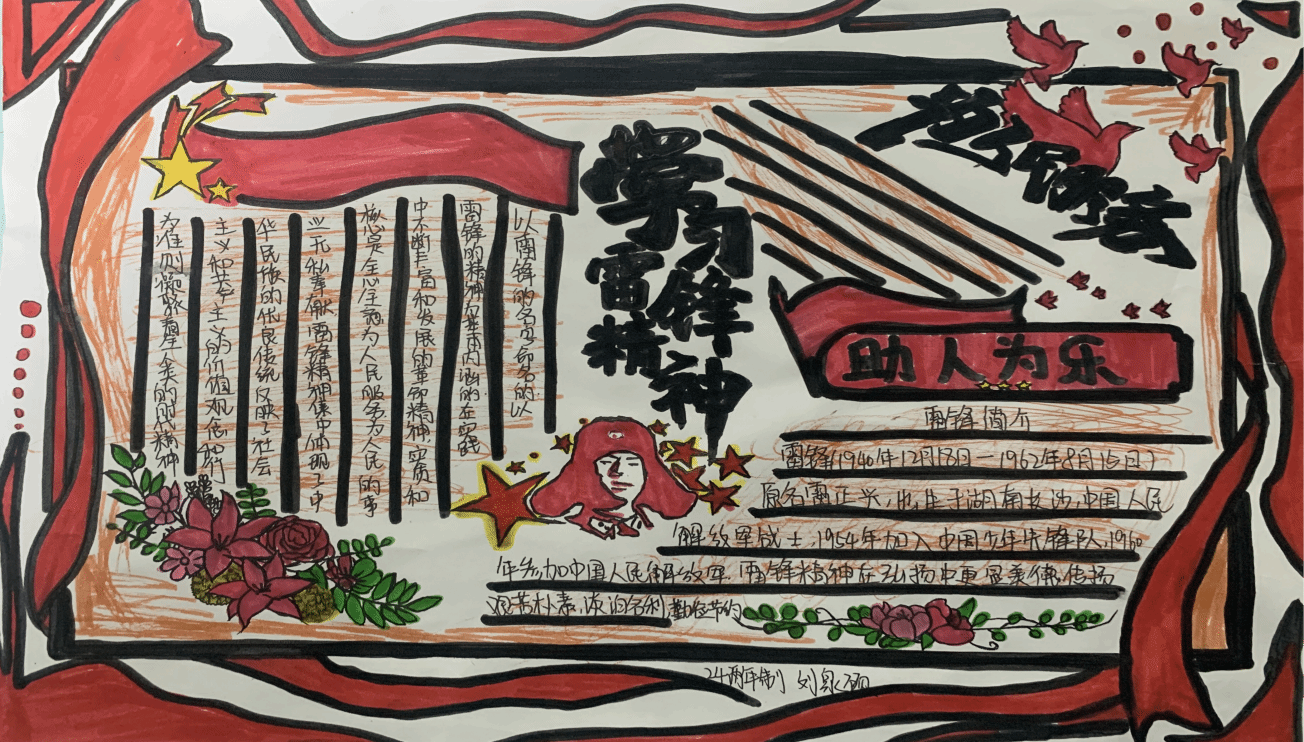 学习
雷锋
精神
助人为乐
以雷锋的名字命名的以
雷锋的精神为基本内涵的在实践
中不断丰富和发展的革命精神,实质和
核心是全心全意为人民服务为人民的事
业无私奉献雷锋精神集中体现了中
华民族的优良传统反映了社会
主义和共产主义的价值观念和行
为准则凝聚群众的时代精神
雷锋简介
雷锋(1940年12月18日—1962年8月15日)
原名雷正兴,出生于湖南长沙,中国人民
解放军战士,1954年加入中国少年先锋队,1960
年参加中国人民解放军.雷锋精神在弘扬中
艰苦朴素,淡泊名利 勤俭节约
24两年制 刘